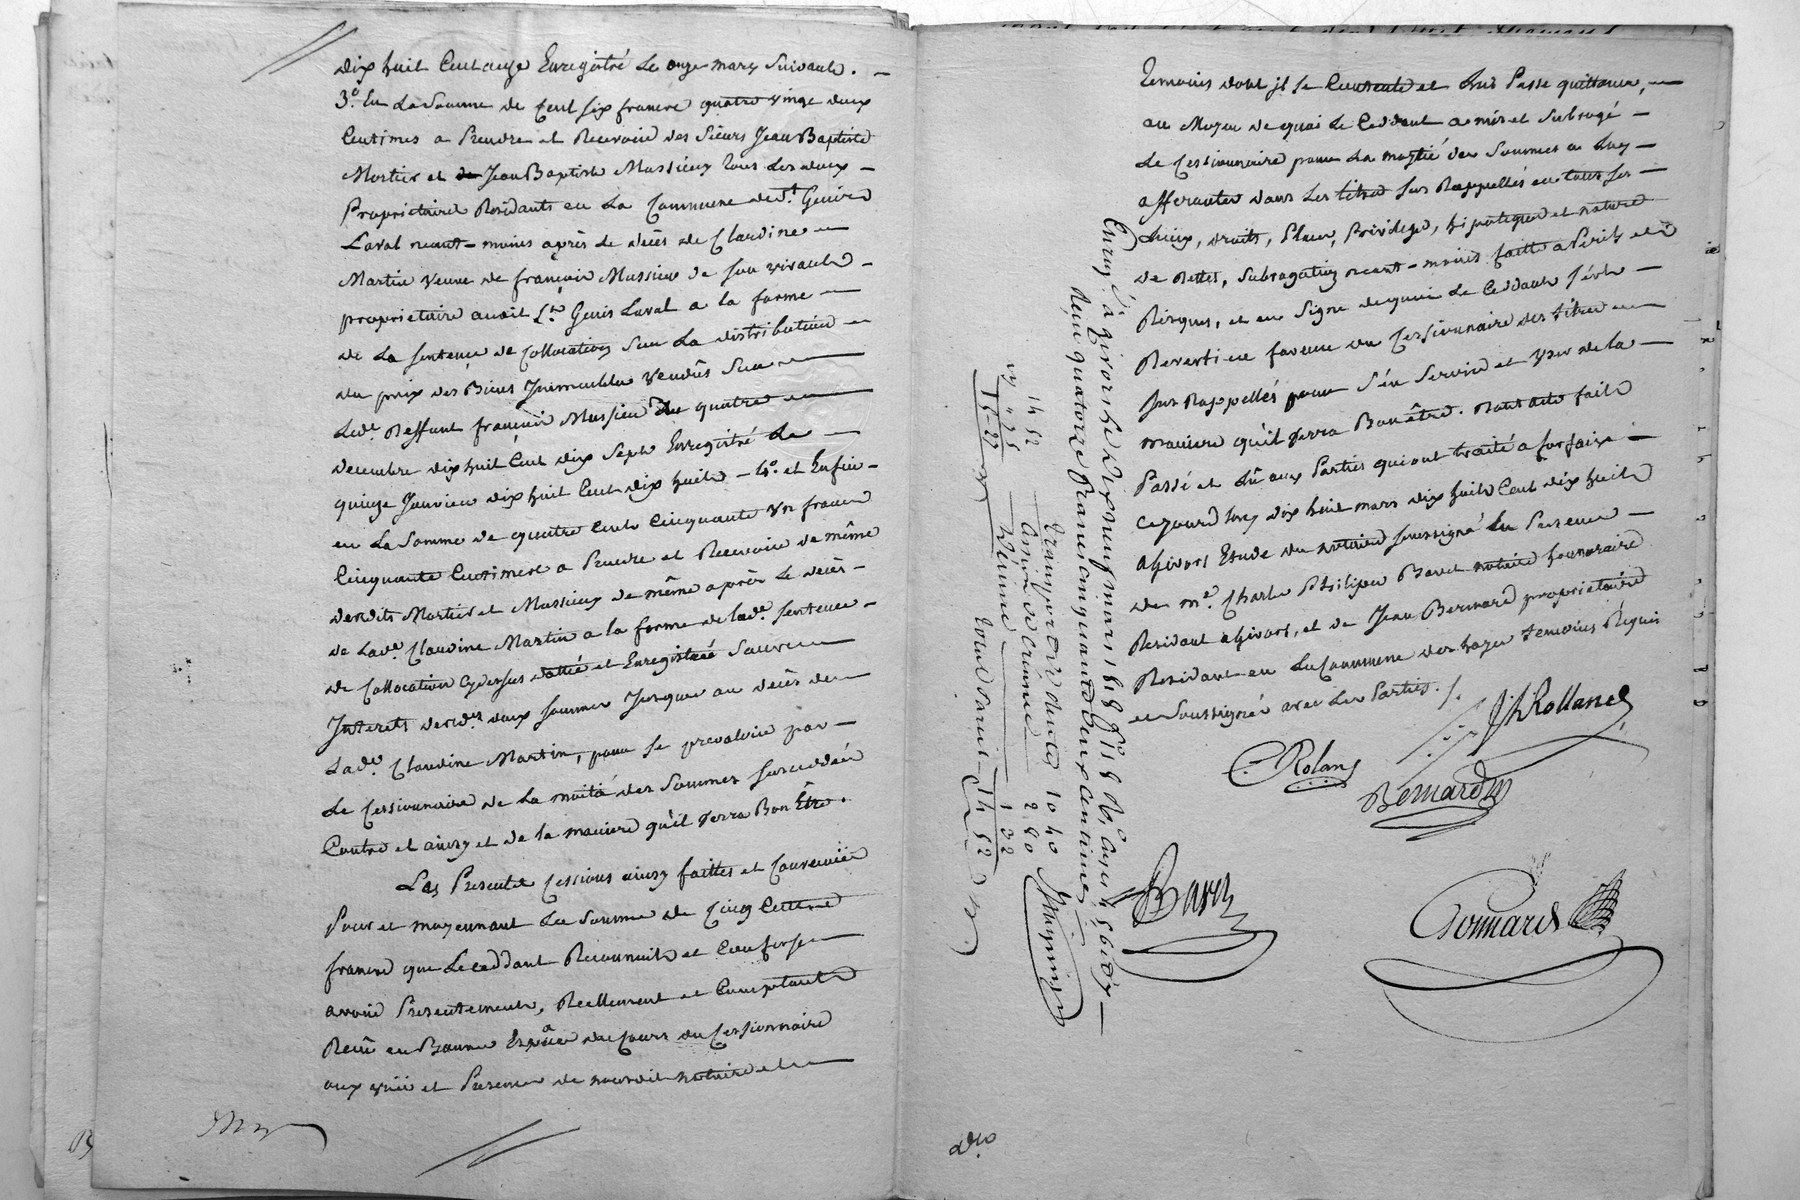 dix huit Cent onze Enregistré Le onze mars Suivant. —
3.° En La Somme de Cent six francs quatre vingt deux
Centimes a Prendre et Recevoir des Sieurs Jean Baptiste
Mortier et Jean Baptiste Mussieux tous Les deux —
Propriétaires Residants en La Commune de St. Genis
Laval neant-moins après Le décès de Claudine —
Martin veuve de françois Mussieu de son vivant —
propriétaire audit St. Genis Laval a la forme —
de La sentence de Collocation Sur La distribution —
du prix des Biens Immeubles vendus Sur —
Led.t Deffunt françois Mussieu du quatre —
decembre dix huit Cent dix Sept Enregistré Le —
quinze Janvier dix huit Cent dix huit — 4.° et Enfin —
en La Somme de quatre Cents Cinquante un francs
Cinquante Centimes a Prendre et Recevoir de même
desdits Mortier et Mussieux de même après Le décès —
de Lad.e Claudine Martin a la forme de lad.e sentence —
de Collocation cydessus dattée et Enregistrée Sauf
Interets desd.es deux sommes Jusques au décès de —
Lad.e Claudine Martin, pour se prevaloir par —
Le Cessionnaire de La moitié des Sommes susceddées
Contre et ainsy et de la maniere qu'il verra Bon Etre.
Les Presentes Cessions ainsy faittes et Convenües
Pour et moyennant La Somme de Cinq Cents
francs que Le Ceddant Reconnoit et Confesse —
avoir Presentement, Réellement et Comptant
Reçu en Bonne Espèce du Cours du Cessionnaire
aux vuës et Presence de nousdit notaire et —
Temoins dont il se Contente et Luy Passe quittance, —
au Moyen de quoi Le Ceddant a mis et Subrogé —
Le Cessionnaire pour La moytié des Sommes a Luy —
afferantes dans Les titres sus Rappellés en tous ses —
Lieux, droits, Place, Privilege, hipoteques et nature
de dettes, Subrogation neant-moins faitte a Perils et
Risques, et en Signe de quoi Le Ceddant s'est —
Deverti en faveur du Cessionnaire des titres —
sus Rappellés pour S'en Servir et User de la —
maniere qu'il verra Bon être. Dont acte fait
Passé et Lû aux Parties qui ont traité a forfait —
Cejourd'huy dix huit mars dix huit Cent dix huit
a Givors Etude du notaire soussigné En Presence —
de M.e Charle Philipes Baret notaire honoraire
Residant a Givors, et de Jean Bernard propriétaire
Residant en La Commune des hayes temoins Requis
et Soussignés avec Les Parties. /.
JhRolland
CRolan
Bernard
Baret
Gonnard
Enreg. à Givors le dixneuf mars 1818 f.° 118
Reçu quatorze francs cinquante deux centimes
14 52
" 75
15-27
Transport de dettes 10 40
2 80
Dixieme 1 32
14 52